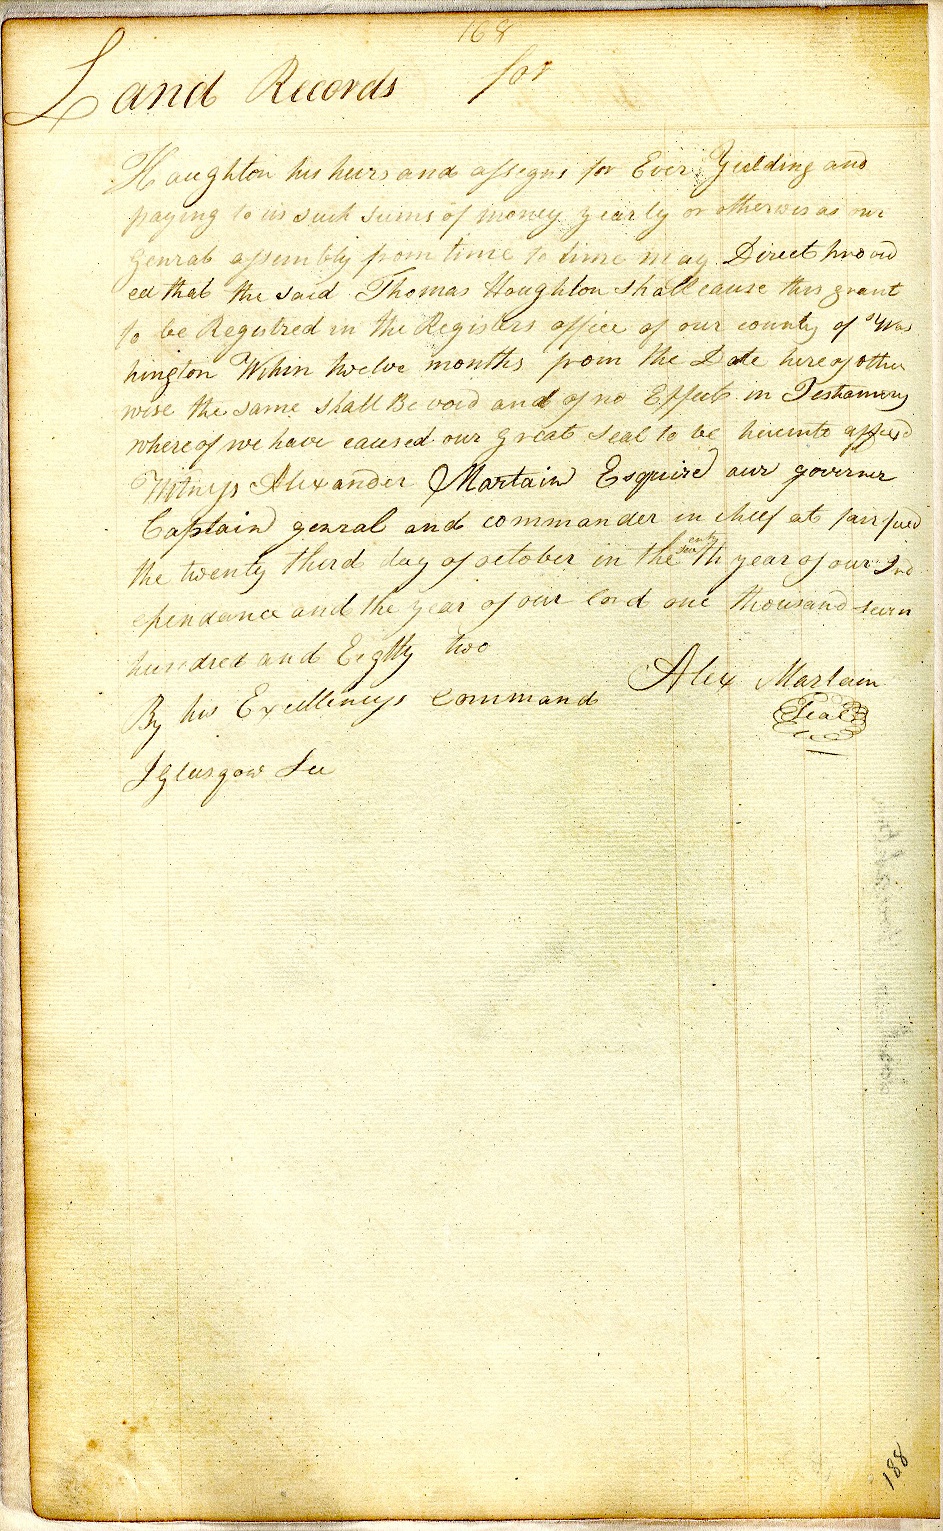 168
Land Records for
Haughton his heirs and assigns for Ever Yielding and
paying to us such sums of money yearly or otherwis as our
genral assembly from time to time may Direct provid
ed that the said Thomas Houghton shall cause this grant
to be Registred in the Registers office of our county of Was
hington Within twelve months from the Date hereof other
wise the same shall Be void and of no Effect in Testamony
whereof we have caused our great seal to be hereunto affixed
Witness Alexander Martain Esquire our governer
Captain genral and commander in cheif at fairfield
the twenty third day of october in the seventh year of our Ind
ependance and the year of our lord one thousand seven
hundred and Eighty two
Alex Martain
By his Excellencys command
Seal
J Glasgow Sec
188